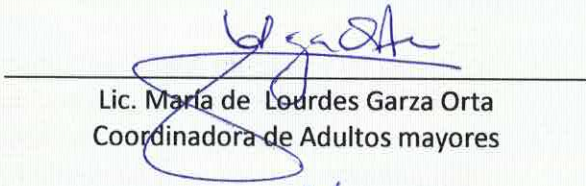 Lic. María de Lourdes Garza Orta
Coordinadora de Adultos mayores